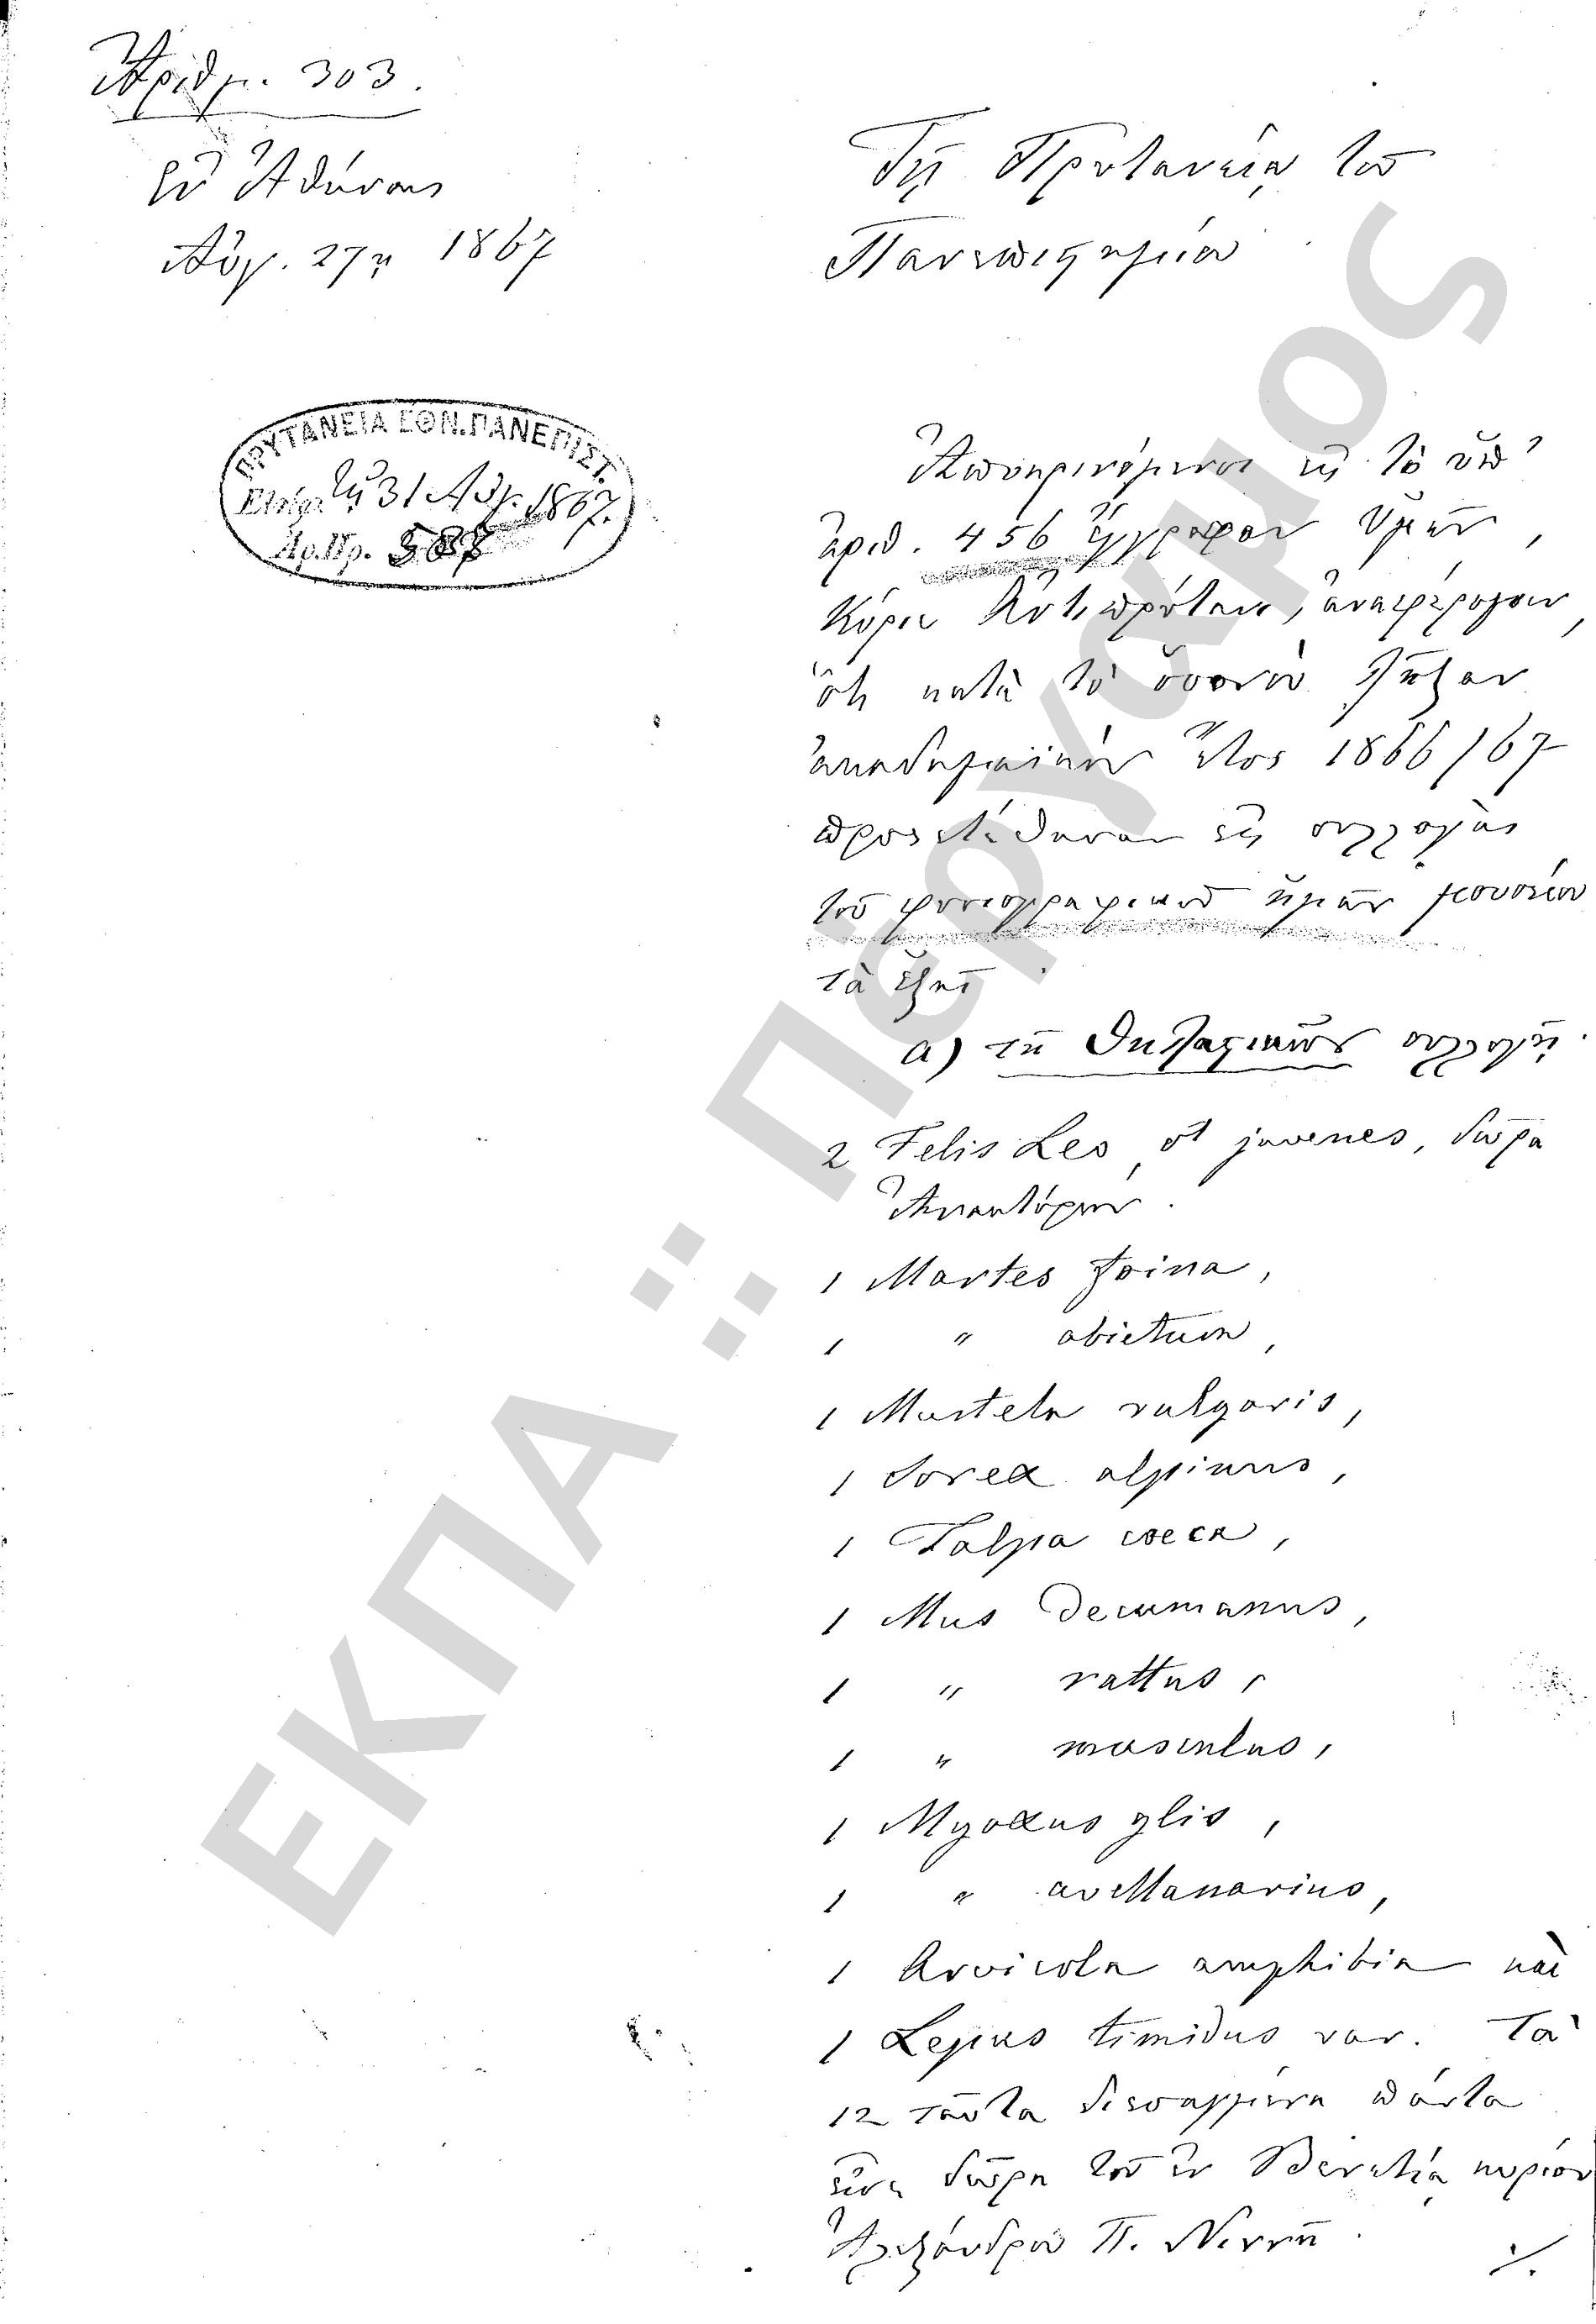 Ἀριθμ. 303.
Ἐν Ἀθήναις
Αὐγ. 27ῃ 1867
Τῇ Πρυτανείᾳ τοῦ
Πανεπιστημίου
ΠΡΥΤΑΝΕΙΑ ΕΘΝ.ΠΑΝΕΠΙΣΤ.
Ἐλήφ. τῇ 31 Αὐγ. 1867.
Ἀρ.Πρ.
Ἀποκρινόμενοι εἰς τὸ ὑπ'
ἀριθ. 456 ἔγγραφον Ὑμῶν,
Κύριε Ἀντιπρύτανι, ἀναφέρομεν,
ὅτι κατὰ τὸ ὅσον οὔπω λῆξαν
ἀκαδημαϊκὸν ἔτος 1866/67
προσετέθησαν εἰς συλλογὰς
τοῦ φυσιογραφικοῦ ἡμῶν μουσείου
τὰ ἑξῆς
α) τῇ θηλαστικῶν συλλογῇ.
2 Felis Leo, juvenes, δῶρα
Ἀνακτόρων.
1 Martes foina,
1 " abietum,
1 Mustela vulgaris,
1 Sorex alpinus,
1 Talpa coeca,
1 Mus decumanus,
1 " rattus,
1 " musculus,
1 Myoxus glis,
1 " avellanarius,
1 Arvicola amphibia καὶ
1 Lepus timidus var. Τὰ
12 ταῦτα διεσαγμένα πάντα
εἶνε δῶρα τοῦ ἐν Βενετίᾳ κυρίου
Ἀλεξάνδρου Π. Νιννῆ.
./.
ΕΚΠΑ :: Πέργαμος